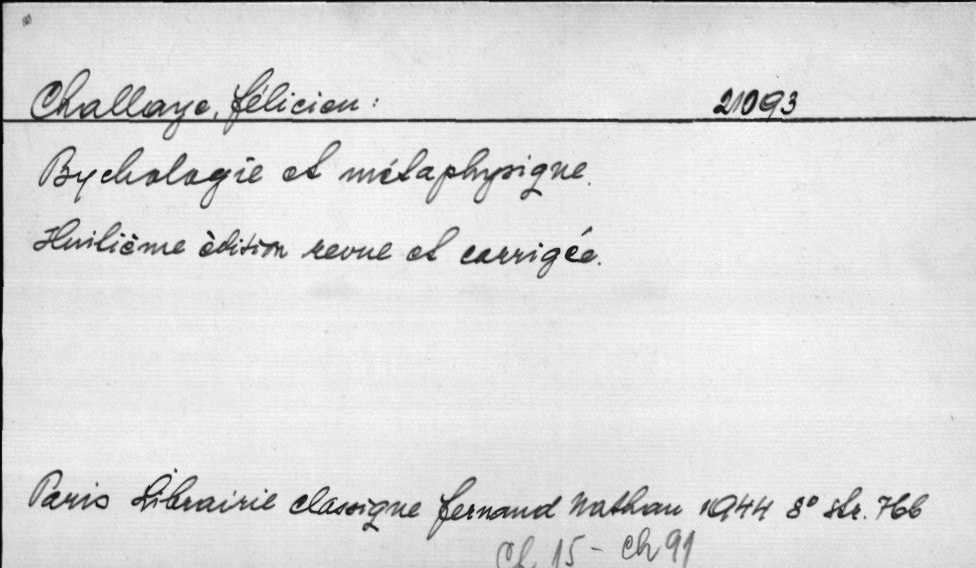 Challaye, félicien: 21093
Psychologie et métaphysique.
Huitième èdition revue et corrigée.
Paris Librairie classique fernand Nathan 1944 8° str. 766
Ch 15 - Ch 91